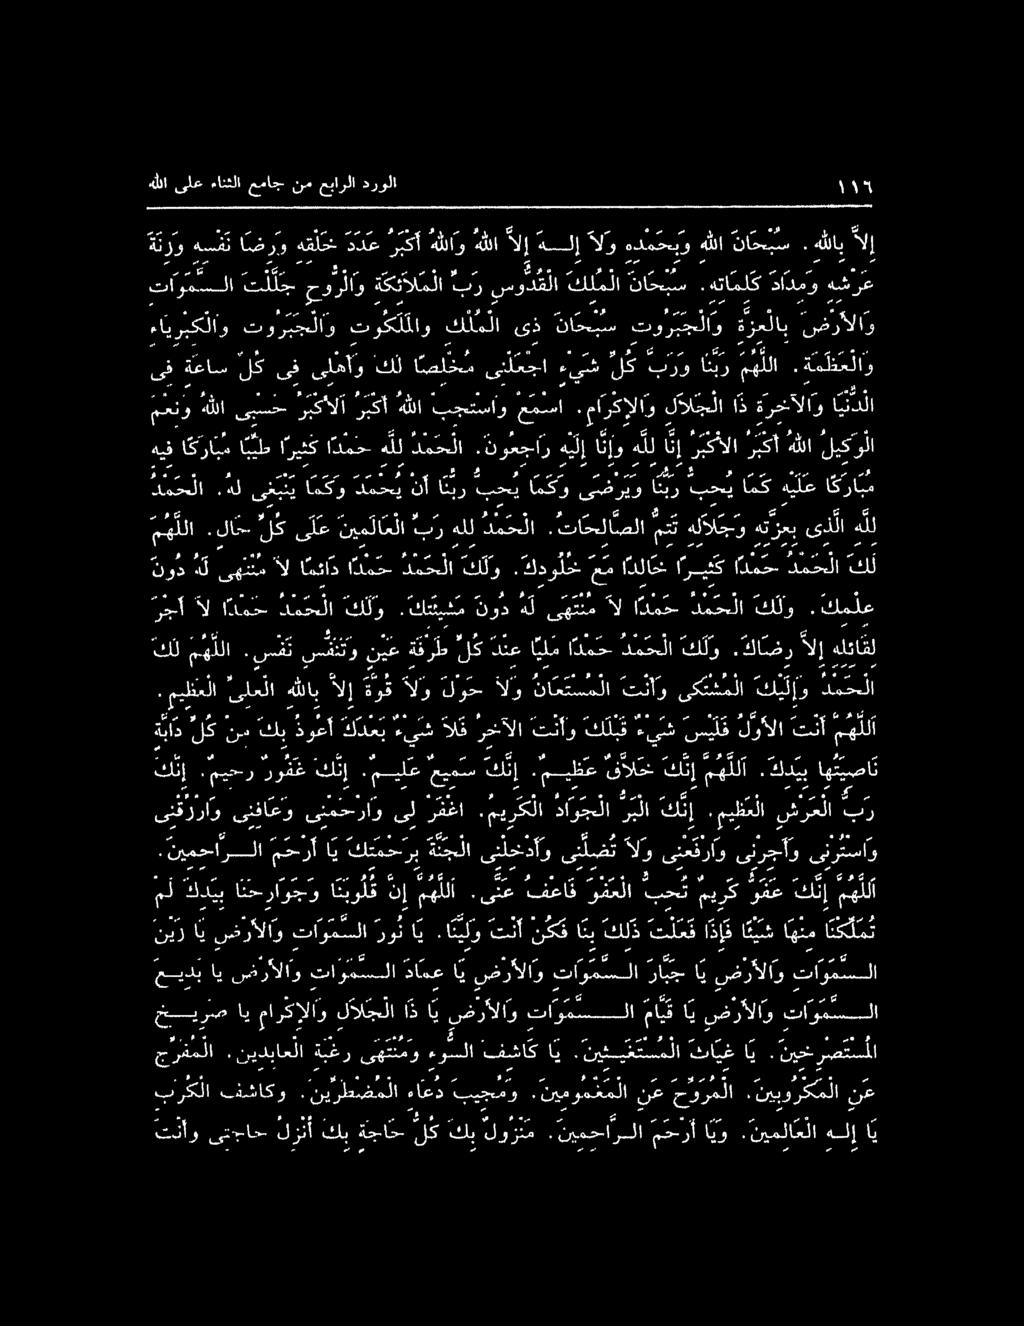 ١١٦ الورد الرابع من جامع الثناء على الله
إِلاَّ بِاللهِ. سُبْحَانَ اللهِ وَبِحَمْدِهِ وَلاَ إِلــهَ إِلاَّ اللهُ وَاللهُ أَكْبَرُ عَدَدَ خَلْقِهِ وَرِضَا نَفْسِهِ وَزِنَةَ
عَرْشِهِ وَمِدَادَ كَلِمَاتِهِ. سُبْحَانَ الْمَلِكِ الْقُدُّوسِ رَبِّ الْمَلاَئِكَةِ وَالرُّوحِ جَلَّلْتَ الـسَّمَوَاتِ
وَالأَرْضَ بِالْعِزَّةِ وَالْجَبَرُوتِ سُبْحَانَ ذِى الْمُلْكِ وَالْمَلَكُوتِ وَالْجَبَرُوتِ وَالْكِبْرِيَاءِ
وَالْعَظَمَةِ. اللَّهُمَّ رَبَّنَا وَرَبَّ كُلِّ شَيْءٍ اجْعَلْنِى مُخْلِصًا لَكَ وَأَهْلِى فِى كُلِّ سَاعَةٍ فِى
الْدُّنْيَا وَالآخِرَةِ ذَا الْجَلاَلِ وَالإِكْرَامِ. اسْمَعْ وَاسْتَجِبْ اللهُ أَكْبَرُ الأَكْبَرُ حَسْبِى اللهُ وَنِعْمَ
الْوَكِيلُ اللهُ أَكْبَرُ الأَكْبَرُ إِنَّا لِلَّهِ وَإِنَّا إِلَيْهِ رَاجِعُونَ. الْحَمْدُ لِلَّهِ حَمْدًا كَثِيرًا طَيِّبًا مُبَارَكًا فِيهِ
مُبَارَكًا عَلَيْهِ كَمَا يُحِبُّ رَبُّنَا وَيَرْضَى وَكَمَا يُحِبُّ رَبُّنَا أَنْ يُحْمَدَ وَكَمَا يَنْبَغِى لَهُ. الْحَمْدُ
لِلَّهِ الَّذِى بِعِزَّتِهِ وَجَلاَلِهِ تَتِمُّ الصَّالِحَاتُ. الْحَمْدُ للهِ رَبِّ الْعَالَمِينَ عَلَى كُلِّ حَالٍ. اللَّهُمَّ
لَكَ الْحَمْدُ حَمْدًا كَثِيـرًا خَالِدًا مَعَ خُلُودِكَ. وَلَكَ الْحَمْدُ حَمْدًا دَائِمًا لاَ مُنْتَهَى لَهُ دُونَ
عِلْمِكَ. وَلَكَ الْحَمْدُ حَمْدًا لاَ مُنْتَهَى لَهُ دُونَ مَشِيئَتِكَ. وَلَكَ الْحَمْدُ حَمْدًا لاَ أَجْرَ
لِقَائِلِهِ إِلاَّ رِضَاكَ. وَلَكَ الْحَمْدُ حَمْدًا مَلِيًّا عِنْدَ كُلِّ طَرْفَةِ عَيْنٍ وَتَنَفُّسِ نَفَسٍ. اللَّهُمَّ لَكَ
الْحَمْدُ وَإِلَيْكَ الْمُشْتَكَى وَأَنْتَ الْمُسْتَعَانُ وَلاَ حَوْلَ وَلاَ قُوَّةَ إِلاَّ بِاللهِ الْعَلِىِّ الْعَظِيمِ.
اَللَّهُمَّ أَنْتَ الأَوَّلُ فَلَيْسَ شَيْءٌ قَبْلَكَ وَأَنْتَ الآخِرُ فَلاَ شَيْءٌ بَعْدَكَ أَعُوذُ بِكَ مِنْ كُلِّ دَابَّةٍ
نَاصِيَتُهَا بِيَدِكَ. اَللَّهُمَّ إِنَّكَ خَلاَّقٌ عَظِيــمٌ. إِنَّكَ سَمِيعٌ عَلِيــمٌ. إِنَّكَ غَفُورٌ رَحِيمٌ. إِنَّكَ
رَبُّ الْعَرْشِ الْعَظِيمِ. إِنَّكَ الْبَرُّ الْجَوَادُ الْكَرِيمُ. اغْفِرْ لِى وَارْحَمْنِى وَعَافِنِى وَارْزُقْنِى
وَاسْتُرْنِى وَأَجِرْنِى وَارْفَعْنِى وَلاَ تُضِلَّنِى وَأَدْخِلْنِى الْجَنَّةَ بِرَحْمَتِكَ يَا أَرْحَمَ الــرَّاحِمِينَ.
اَللَّهُمَّ إِنَّكَ عَفُوٌّ كَرِيمٌ تُحِبُّ الْعَفْوَ فَاعْفُ عَنِّى. اَللَّهُمَّ إِنَّ قُلُوبَنَا وَجَوَارِحَنَا بِيَدِكَ لَمْ
تُمَلِّكْنَا مِنْهَا شَيْئًا فَإِذَا فَعَلْتَ ذَلِكَ بِنَا فَكُنْ أَنْتَ وَلِيَّنَا. يَا نُورَ السَّمَوَاتِ وَالأَرْضِ يَا زَيْنَ
الـسَّمَوَاتِ وَالأَرْضِ يَا جَبَّارَ الـسَّمَوَاتِ وَالأَرْضِ يَا عِمَادَ الـسَّمَوَاتِ وَالأَرْضِ يَا بَدِيــعَ
الـسَّمَوَاتِ وَالأَرْضِ يَا قَيَّامَ الــسَّمَوَاتِ وَالأَرْضِ يَا ذَا الْجَلاَلِ وَالإِكْرَامِ يَا صَرِيــخَ
الْمُسْتَصْرِخِينَ. يَا غِيَاثَ الْمُسْتَغِيــثِينَ. يَا كَاشِفَ السُّوءِ وَمُنْتَهَى رَغْبَةِ الْعَابِدِينَ. الْمُفَرِّجُ
عَنِ الْمَكْرُوبِينَ. الْمُرَوِّحُ عَنِ الْمَغْمُومِينَ. وَمُجِيبَ دُعَاءِ الْمُضْطَرِّينَ. وَكَاشِفَ الْكَرْبِ
يَا إِلَـهَ الْعَالَمِينَ. وَيَا أَرْحَمَ الـرَّاحِمِينَ. مَنْزُولٌ بِكَ كُلُّ حَاجَةٍ بِكَ أُنْزِلُ حَاجَتِى وَأَنْتَ